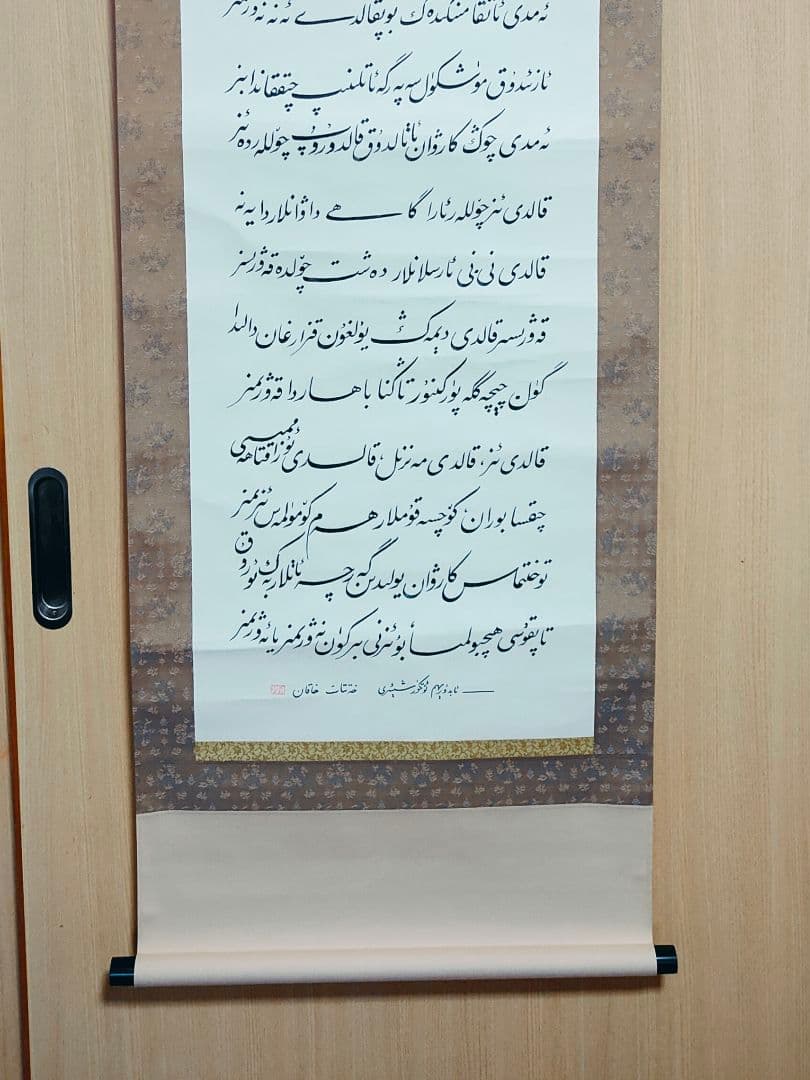 ئەمدى ئاتقا مىنگۈدەك بوپ قالدى ئەنە نەۋرىمىز
ئاز ئىدۇق مۈشكۈل سەپەرگە ئاتلىنىپ چىققاندا بىز
ئەمدى چوڭ كارۋان ئاتالدۇق قالدۇرۇپ چۆللەردە ئىز
قالدى ئىز چۆللەر ئارا گاھى داۋانلاردا يەنە
قالدى نى نى ئارسلانلار دەشت چۆلدە قەۋرىسىز
قەۋرىسىز قالدى دېمەڭ يۇلغۇن قىزارغان دالىدا
گۈل چېچەككە پۈركىنۇر تاڭنا باھاردا قەۋرىمىز
قالدى ئىز، قالدى مەنزىل، قالدى ئۇزاقتا ھەممىسى
چىقسا بوران، كۆچسە قۇملار ھەم كۆمۈلمەس ئىزىمىز
توختىماس كارۋان يولىدىن گەرچە ئاتلار بەك ئورۇق
تاپقۇسى ھېچبولمىسا بۇ ئىزنى بىر كۈن نەۋرىمىز يا ئەۋرىمىز
— ئابدۇرېھىم ئۆتكۈر شېئىرى خەتتات خاقان